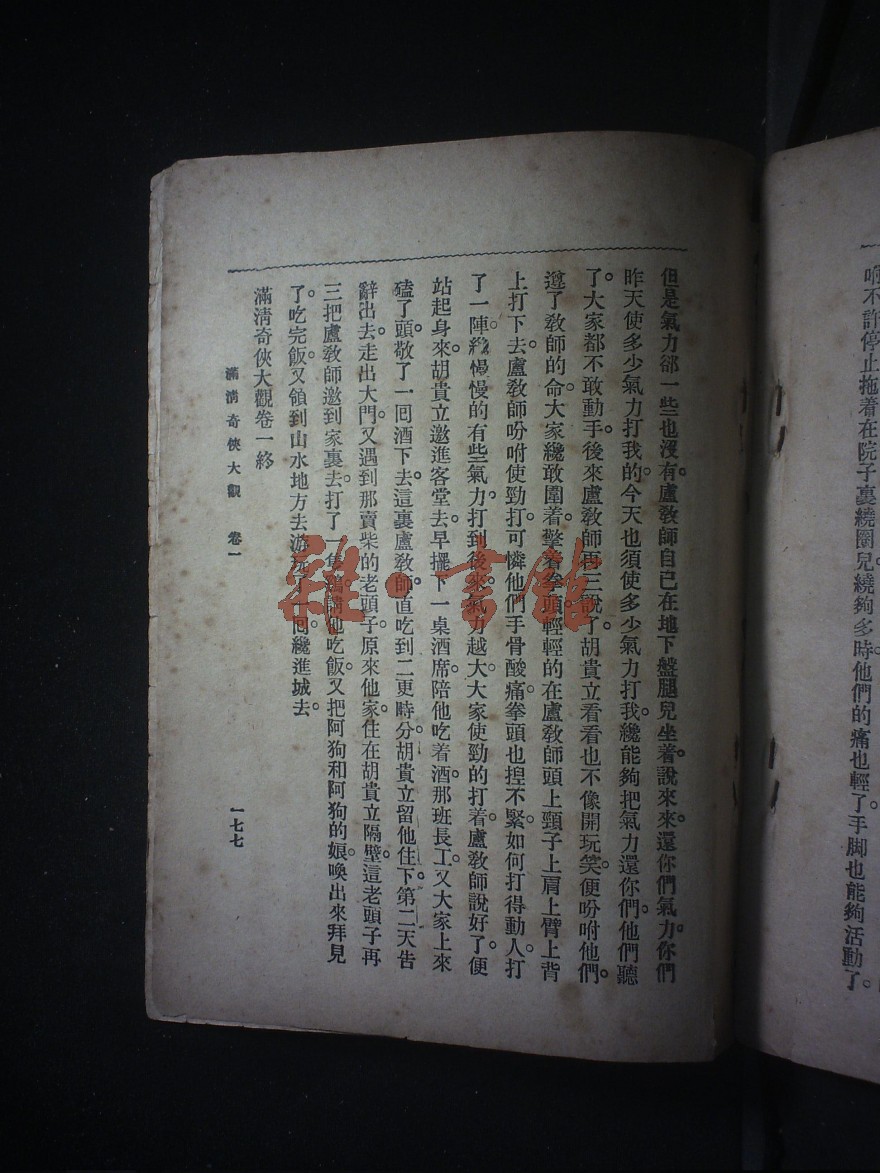 啊不許停止拖着在院子裏繞圈兒繞夠多時他們的痛也輕了手脚也能夠活動了。
但是氣力卻一些也沒有。盧敎師自己在地下盤腿兒坐着。說來來。還你們氣力。你們
昨天使多少氣力打我的。今天也須使多少氣力打我。纔能夠把氣力還你們。他們聽
了。大家都不敢動手。後來盧敎師再三說了。胡貴立看看也不像開玩笑。便吩咐他們。
遵了敎師的命。大家纔敢圍着。擎着拳頭。輕輕的在盧敎師頭上頸子上肩上臂上背
上打下去。盧敎師吩咐使勁打。可憐他們手骨酸痛。拳頭也揑不緊。如何打得動人。打
了一陣。纔慢慢的有些氣力。打到後來。氣力越大。大家使勁的打着。盧敎師說好了。便
站起身來。胡貴立邀進客堂去。早擺下一桌酒席。陪他吃着酒。那班長工。又大家上來
磕了頭。敬了一囘酒下去。這裏盧敎師直吃到二更時分。胡貴立留他住下。第二天告
辭出去。走出大門。又遇到那賣柴的老頭子。原來他家住在胡貴立隔壁。這老頭子再
三把盧敎師邀到家裏去。打了一隻鷄。請他吃飯。又把阿狗和阿狗的娘喚出來拜見
了。吃完飯。又領到山水地方去游玩了一囘。纔進城去。
滿淸奇俠大觀卷一終
滿淸奇俠大觀 卷一
一七七
雜·書館